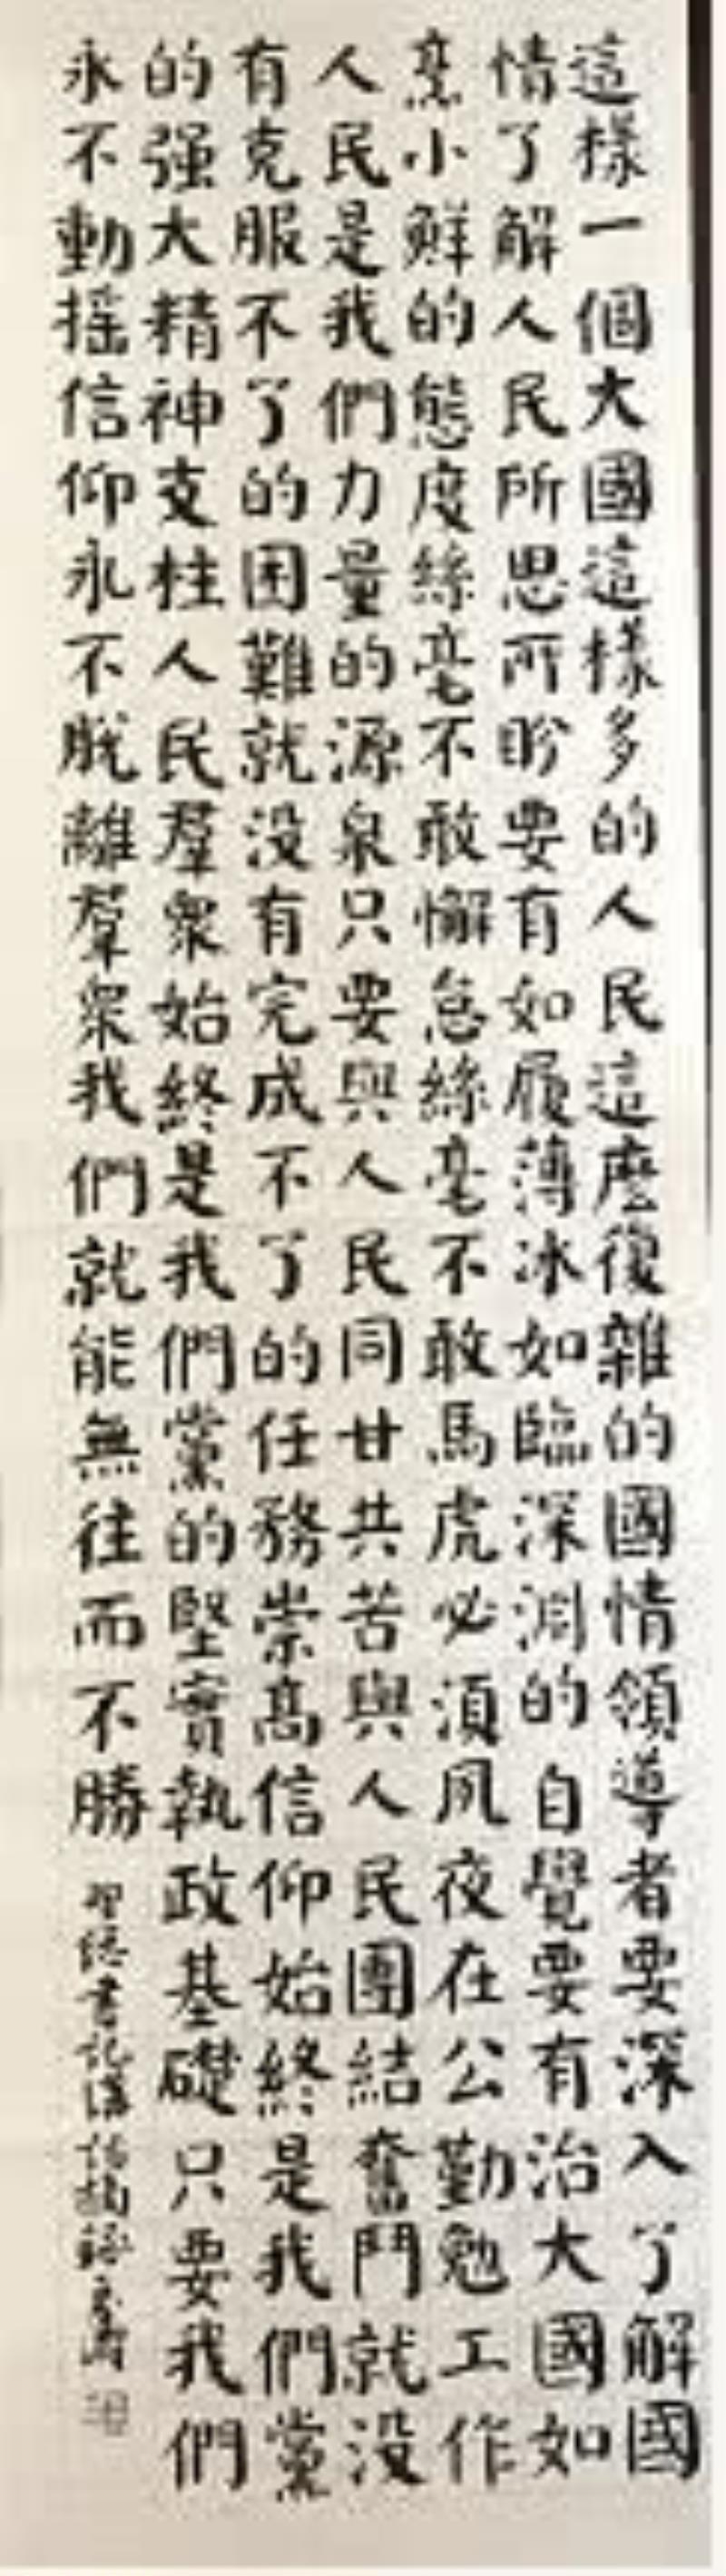 這樣一個大國這樣多的人民這麼復雜的國情領導者要深入了解國
情了解人民所思所盼要有如履薄冰如臨深淵的自覺要有治大國如
烹小鮮的態度絲毫不敢懈怠絲毫不敢馬虎必須夙夜在公勤勉工作
人民是我們力量的源泉只要與人民同甘共苦與人民團結奮鬥就没
有克服不了的困難就没有完成不了的任務崇高信仰始終是我們黨
的强大精神支柱人民羣衆始終是我們黨的堅實執政基礎只要我們
永不動摇信仰永不脱離羣衆我們就能無往而不勝
總書記講話摘録